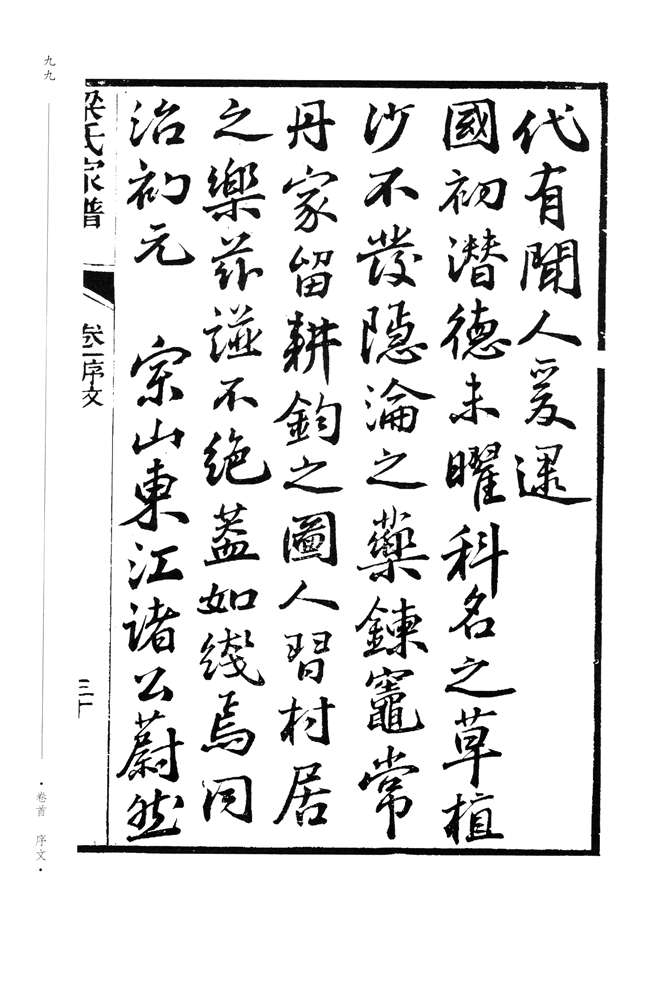 代有聞人爰逮
國初潛德未曜科名之草植
沙不發隱淪之藥鍊竈常
丹家留耕釣之圖人習村居
之樂茲不絕蓋如綫焉同
治初元 宗山東江諸公蔚然
梁氏家譜 卷一序文 三十
九九
·卷首 序文·